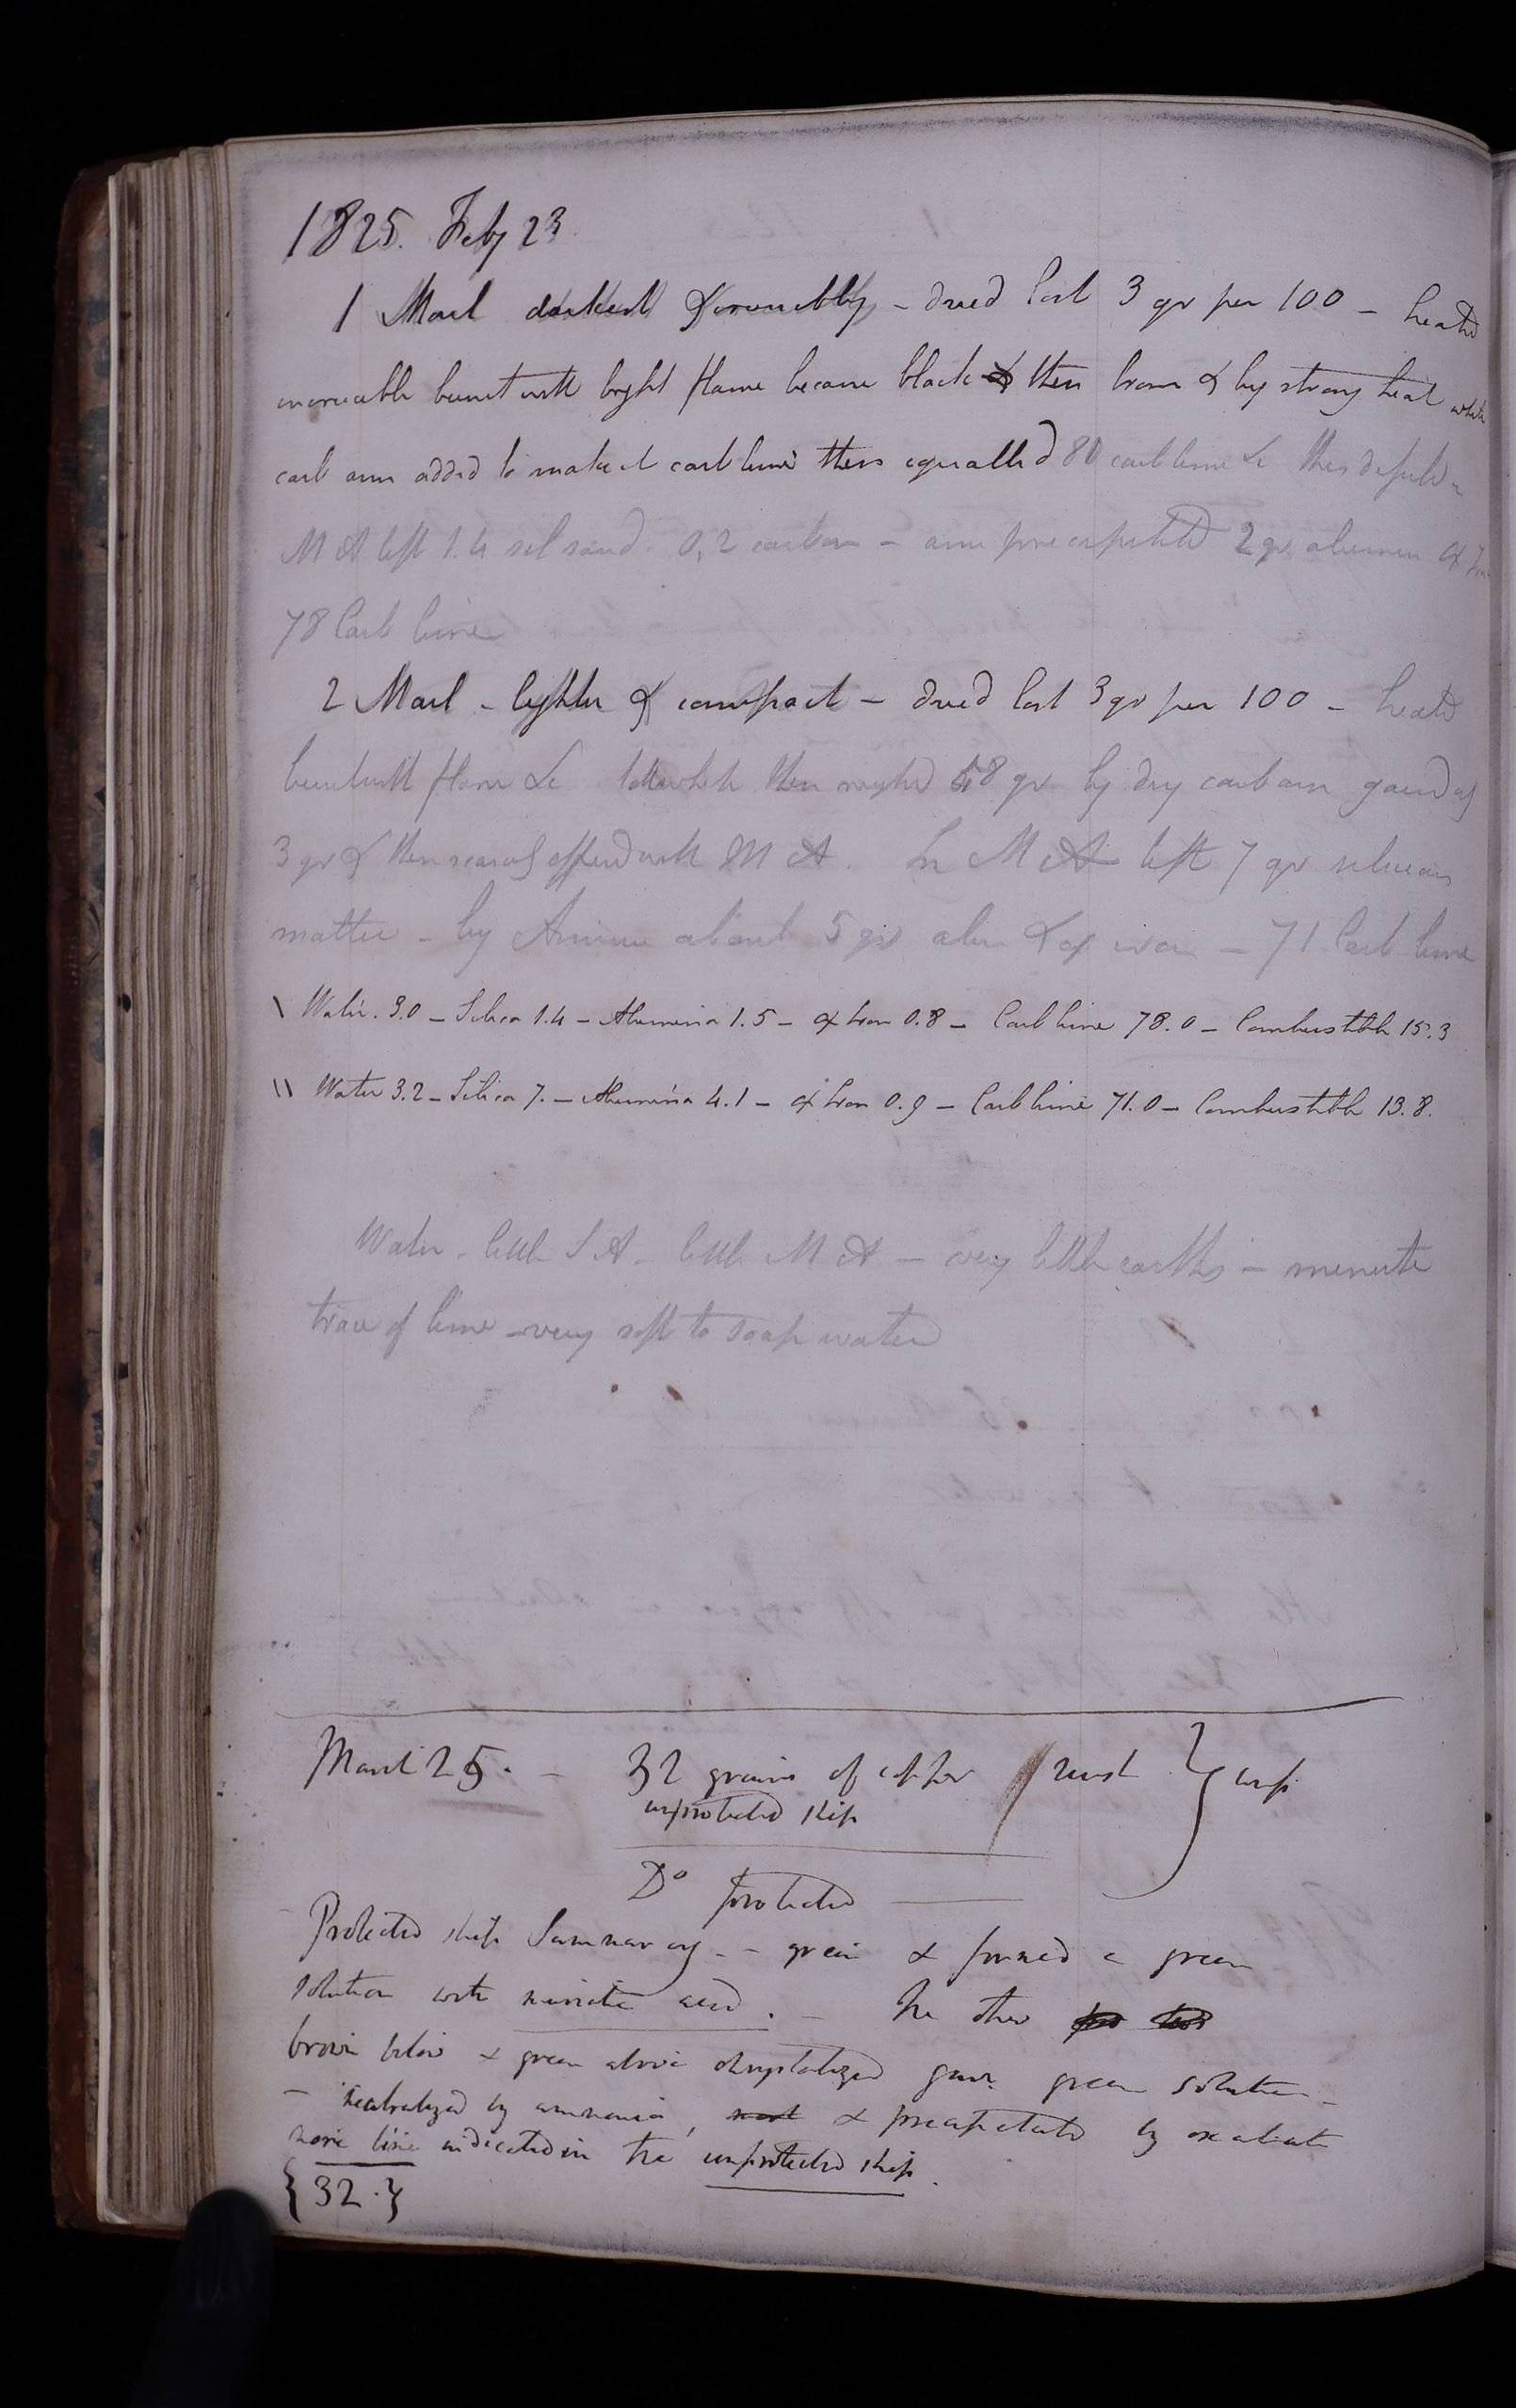 1825. Feby 23
1 Marl darkest & crumbly - dried lost 3 gr per 100 - heated
in crucible burnt with bright flame became black & then brown & by strong heat white
carb amm added to make it carb lime then equalled 80 carb lime &c this dissolved in
M A left 1.4 sil sand. 0,2 carbon - amm precipitated 2 gr alumina ox Iron
78 Carb lime
2 Marl - lighter & compact - dried lost 3 gr per 100 - heated
burnt with flame &c till white then weighed 48 gr by dry carb amm gained
3 gr & then scarcely effervd with M A. In M A left 7 gr siliceous
matter - by Ammo about 5 gr alum & ox iron - 71 Carb lime
\ Water. 3.0 - Silica 1.4 - Alumina 1.5 - ox Iron 0.8 - Carb lime 78.0 - Combustible 15.3
\\ Water 3.2 - Silica 7. - Alumina 4.1 - ox Iron 0.9 - Carb lime 71.0 - Combustible 13.8.
Water - little S A - little M A - very little earths - minute
trace of lime - very soft to soap water
March 25. - 32 grains of copper rust
unprotected ship
Do protected
Protected ship Sammarang - - green & formed a green
solution with muriatic acid. - The other
brown below & green above chrystalized gave green solution
- neutralized by ammonia, & precipitated by oxalate
more lime indicated in the unprotected ship.
{32.}